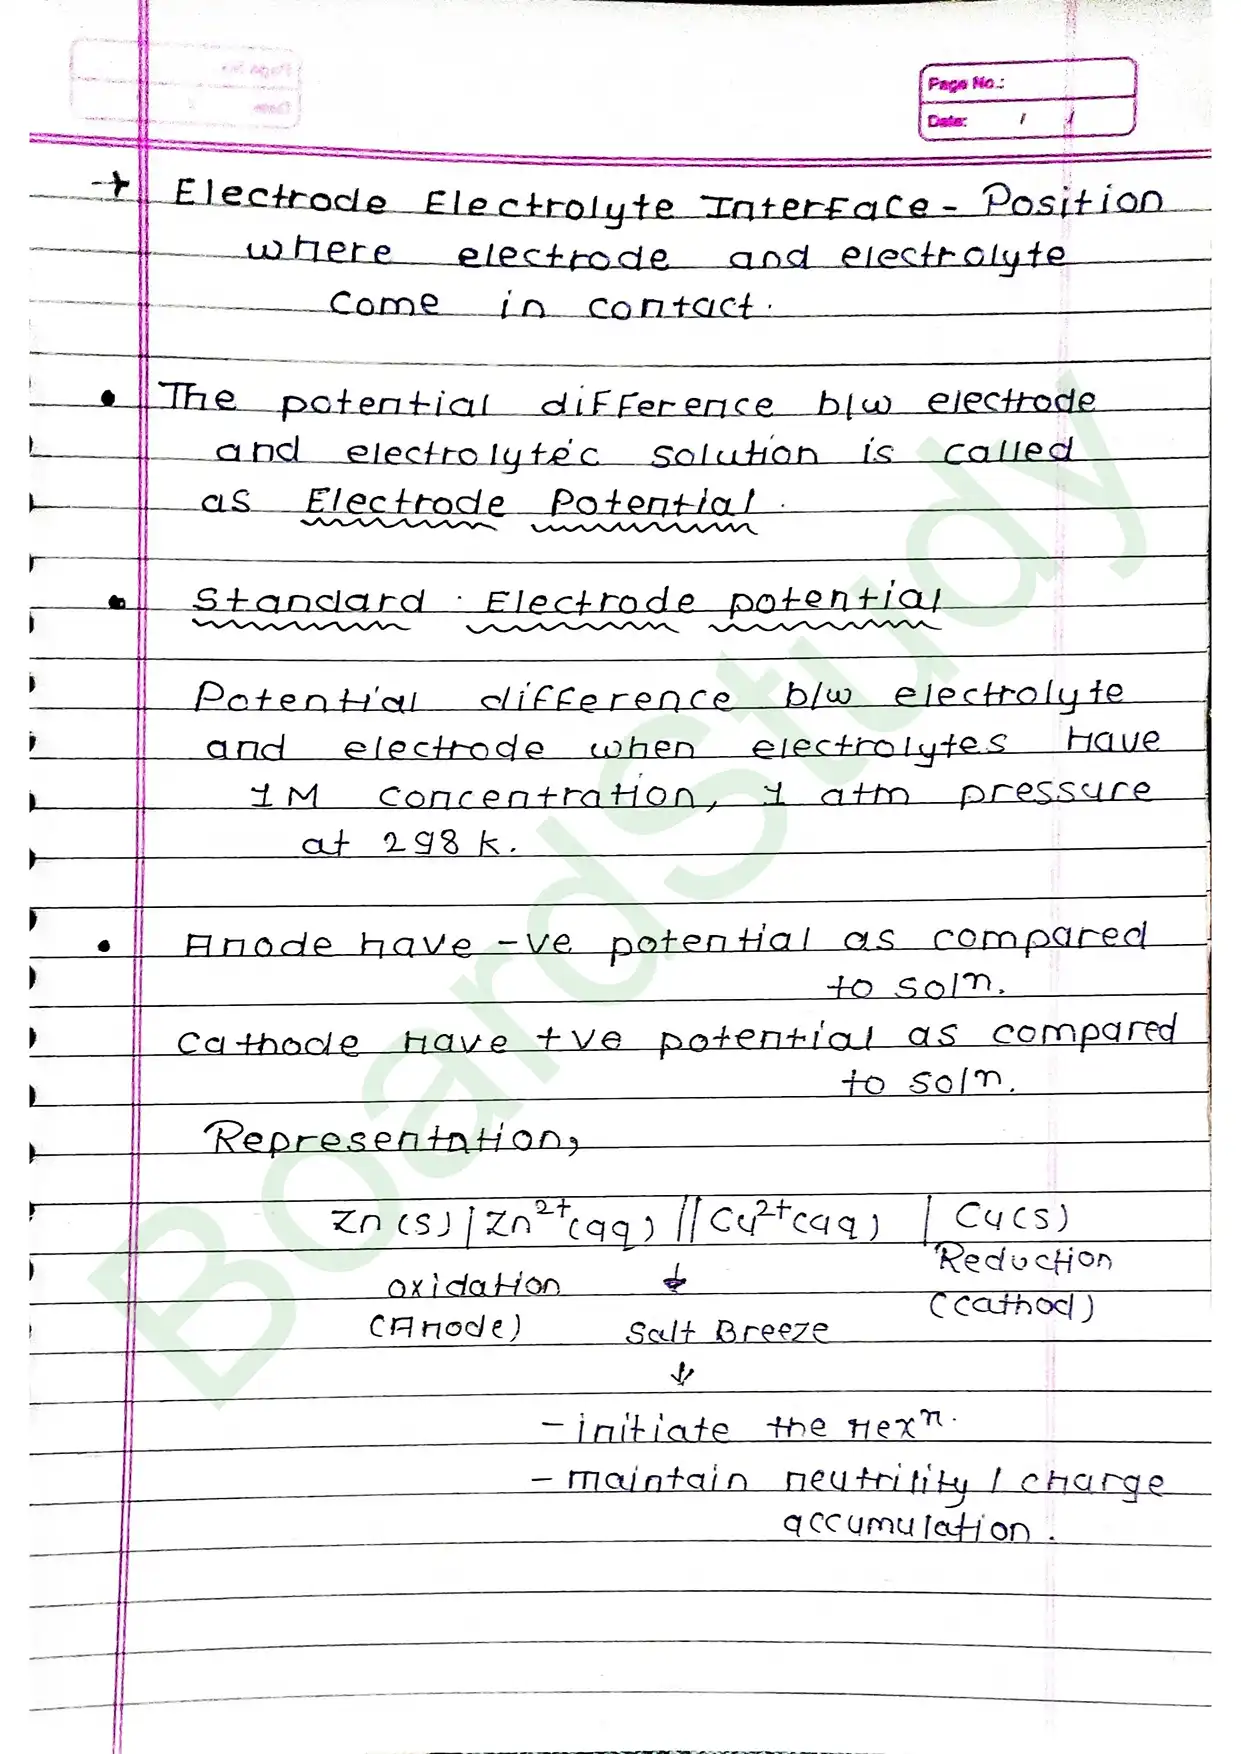 Page No.:
Date: / /
→ Electrode Electrolyte Interface - Position
where electrode and electrolyte
come in contact.
• The potential difference b/w electrode
and electrolytec solution is called
as Electrode Potential.
• Standard Electrode potential
Potential difference b/w electrolyte
and electrode when electrolytes have
1M concentration, 1 atm pressure
at 298 k.
• Anode have -ve potential as compared
to soln.
Cathode have +ve potential as compared
to soln.
Representation,
Zn(s) | Zn²⁺(aq) || Cu²⁺(aq) | Cu(s)
oxidation ↓ Reduction
(Anode) Salt Breeze (Cathod)
↓
- initiate the rexⁿ.
- maintain neutrility / charge
accumulation.
BoardStudy